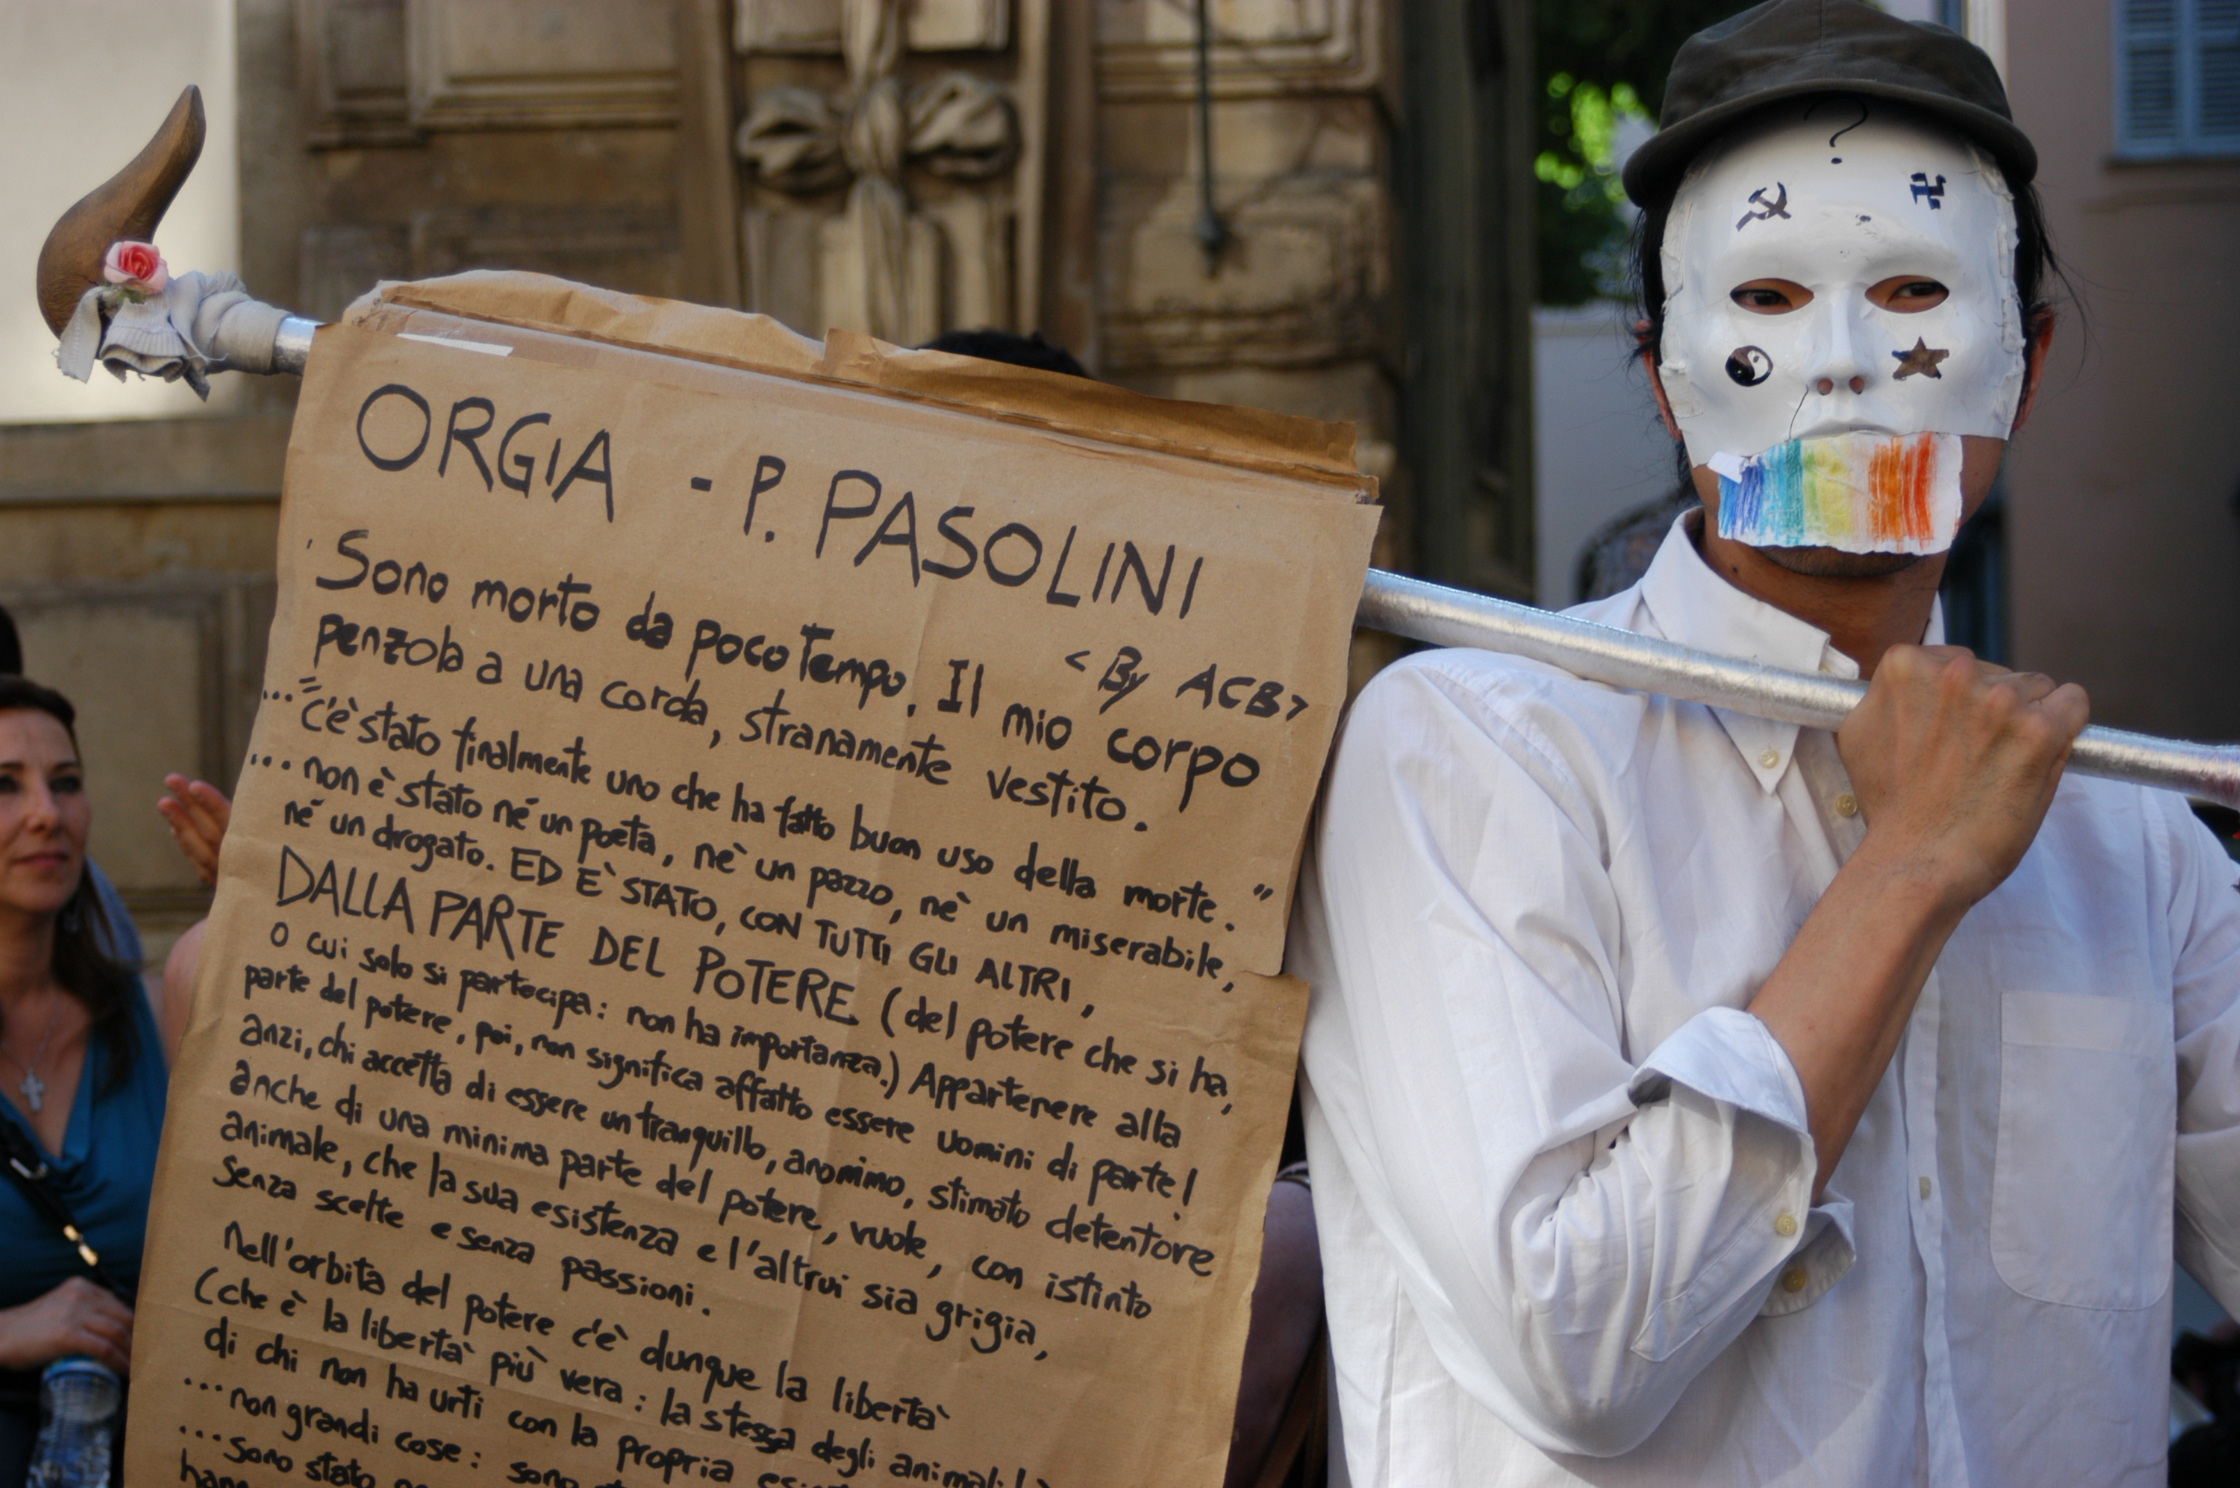 ORGIA - P. PASOLINI
<By ACB>
Sono morto da poco tempo. Il mio corpo
penzola a una corda, stranamente vestito.
..."c'è stato finalmente uno che ha fatto buon uso della morte."
...non è stato né un poeta, nè un pazzo, nè un miserabile,
né un drogato. ED E' STATO, CON TUTTI GLI ALTRI,
DALLA PARTE DEL POTERE (del potere che si ha,
o cui solo si partecipa: non ha importanza.) Appartenere alla
parte del potere, poi, non significa affatto essere uomini di parte!
anzi, chi accetta di essere un tranquillo, anonimo, stimato detentore
anche di una minima parte del potere, vuole, con istinto
animale, che la sua esistenza e l'altrui sia grigia,
senza scelte e senza passioni.
Nell'orbita del potere c'è dunque la libertà
(che è la libertà più vera: la stessa degli animali
di chi non ha urti con la propria
...non grandi cose:
...sono stato
?